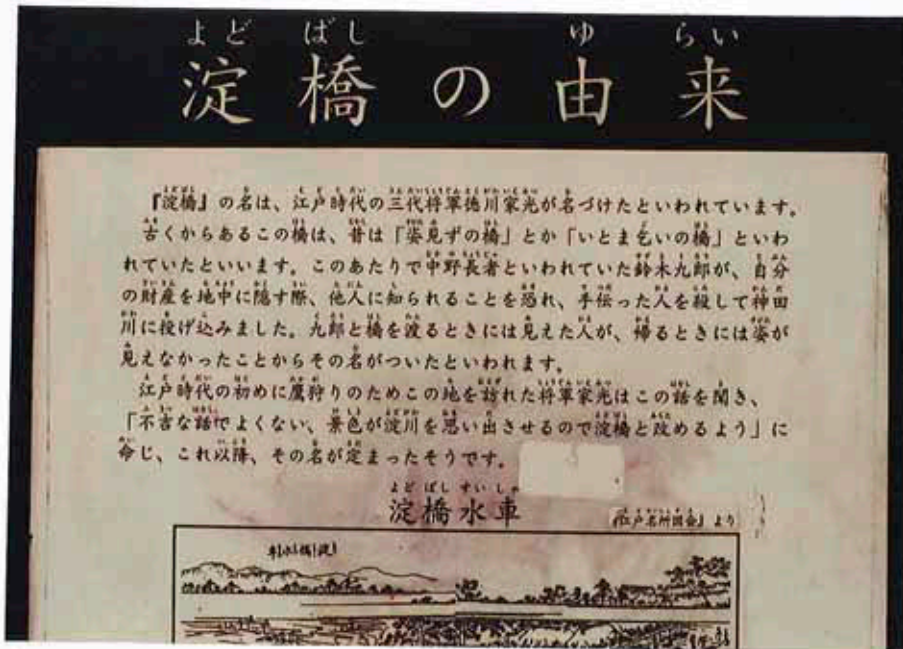 よどばしのゆらい
淀橋の由来
『淀橋』の名は、江戸時代の三代将軍徳川家光が名づけたといわれています。
古くからあるこの橋は、昔は「姿見ずの橋」とか「いとま乞いの橋」といわ
れていたといいます。このあたりで中野長者といわれていた鈴木九郎が、自分
の財産を地中に隠す際、他人に知られることを恐れ、手伝った人を殺して神田
川に投げ込みました。九郎と橋を渡るときには見えた人が、帰るときには姿が
見えなかったことからその名がついたといわれます。
江戸時代の初めに鷹狩りのためこの地を訪れた将軍家光はこの話を聞き、
「不吉な話でよくない、景色が淀川を思い出させるので淀橋と改めるよう」に
命じ、これ以降、その名が定まったそうです。
よどばしすいしゃ
淀橋水車
『江戸名所図会』より
淀橋水車